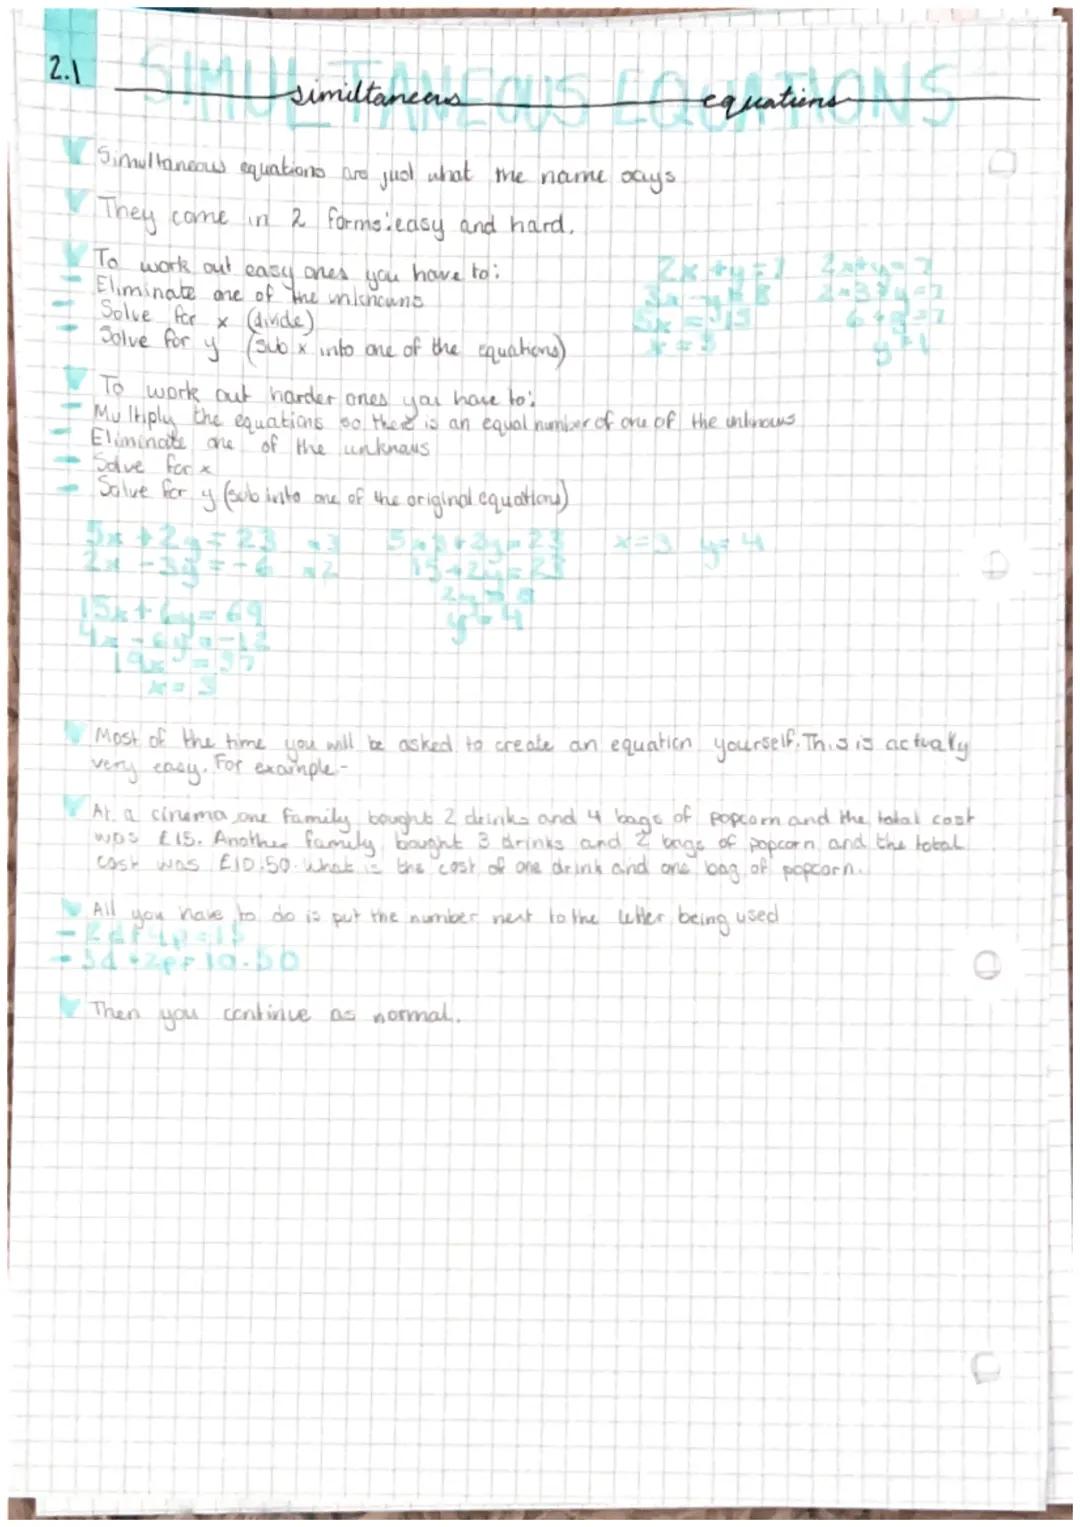 2.1
SIMULTANEOUS EQUATIONS
similtaneous equations
Simultaneous equations are just what the name says
They come in 2 forms: easy and hard.
To work out easy ones you have to:
- Eliminate one of the unknowns
- Solve for x (divide)
- Solve for y (sub x into one of the equations)
2x + y = 7
3x - y = 8
5x = 15
x = 3
2x + y = 7
2 × 3 + y = 7
6 + y = 7
y = 1
To work out harder ones you have to:
- Multiply the equations so there is an equal number of one of the unknowns
- Eliminate one of the unknows
- Solve for x
- Solve for y (sub into one of the original equations)
5x + 2y = 23 ×3
2x - 3y = -6 ×2
15x + 6y = 69
4x - 6y = -12
19x = 57
x = 3
5×3 + 2y = 23
15 + 2y = 23
2y = 8
y = 4
x = 3 y = 4
Most of the time you will be asked to create an equation yourself. This is actually
very easy. For example:-
At a cinema one family bought 2 drinks and 4 bags of popcorn and the total cost
was £15. Another family bought 3 drinks and 2 bags of popcorn and the total
cost was £10.50. What is the cost of one drink and one bag of popcorn.
All you have to do is put the number next to the letter being used
- 2d + 4p = 15
- 3d + 2p = 10.50
Then you continue as normal.